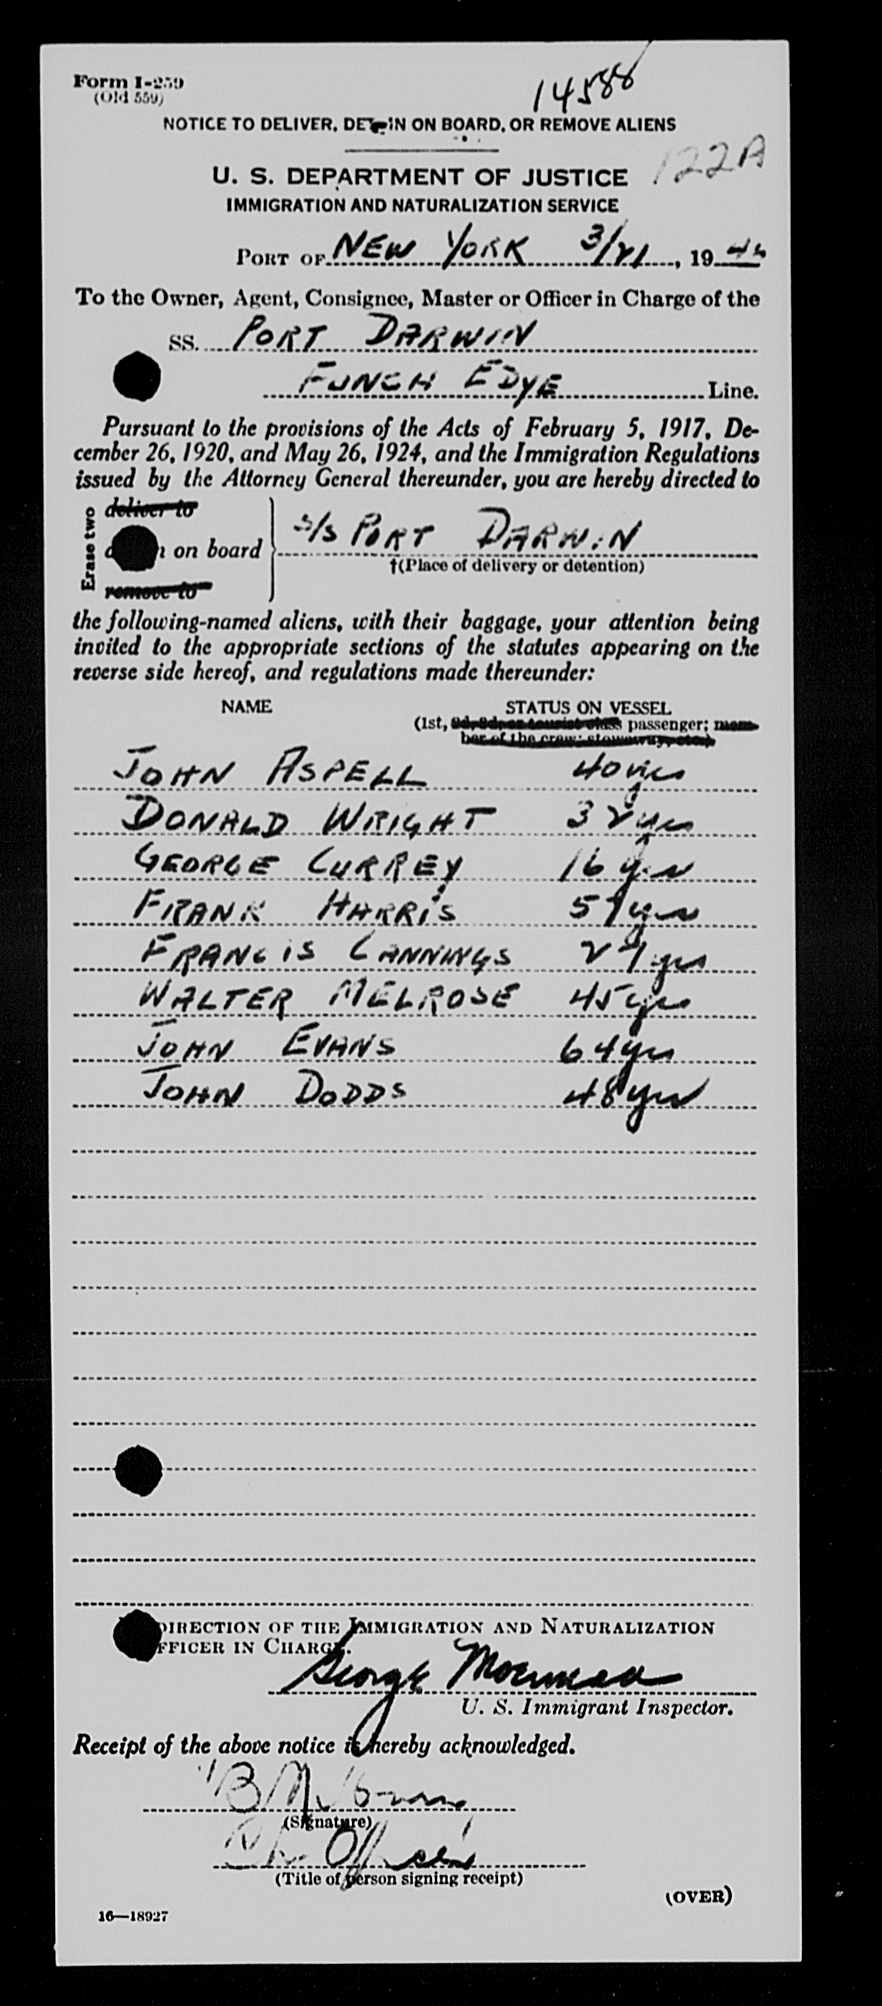 Form I-259
(Old 559)
14588
NOTICE TO DELIVER, DETAIN ON BOARD, OR REMOVE ALIENS
122A
U. S. DEPARTMENT OF JUSTICE
IMMIGRATION AND NATURALIZATION SERVICE
PORT OF NEW YORK 3/21, 19
To the Owner, Agent, Consignee, Master or Officer in Charge of the
SS. PORT DARWIN
FUNCH EDYE Line.
Pursuant to the provisions of the Acts of February 5, 1917, De-
cember 26, 1920, and May 26, 1924, and the Immigration Regulations
issued by the Attorney General thereunder, you are hereby directed to
Erase two
deliver to
on board
remove to
S/S PORT DARWIN
†(Place of delivery or detention)
the following-named aliens, with their baggage, your attention being
invited to the appropriate sections of the statutes appearing on the
reverse side hereof, and regulations made thereunder:
NAME STATUS ON VESSEL
(1st, 2d, 3d, or tourist class passenger; mem-
ber of the crew; stowaway, etc.)
JOHN ASPELL 40 yrs
DONALD WRIGHT 32 yrs
GEORGE CURREY 16 yrs
FRANK HARRIS yrs
FRANCIS CANNINGS yrs
WALTER MELROSE 45 yrs
JOHN EVANS 64 yrs
JOHN DODDS 48 yrs
DIRECTION OF THE IMMIGRATION AND NATURALIZATION
OFFICER IN CHARGE.
George
U. S. Immigrant Inspector.
Receipt of the above notice is hereby acknowledged.
(Signature)
Officer
(Title of person signing receipt)
(OVER)
16—18927